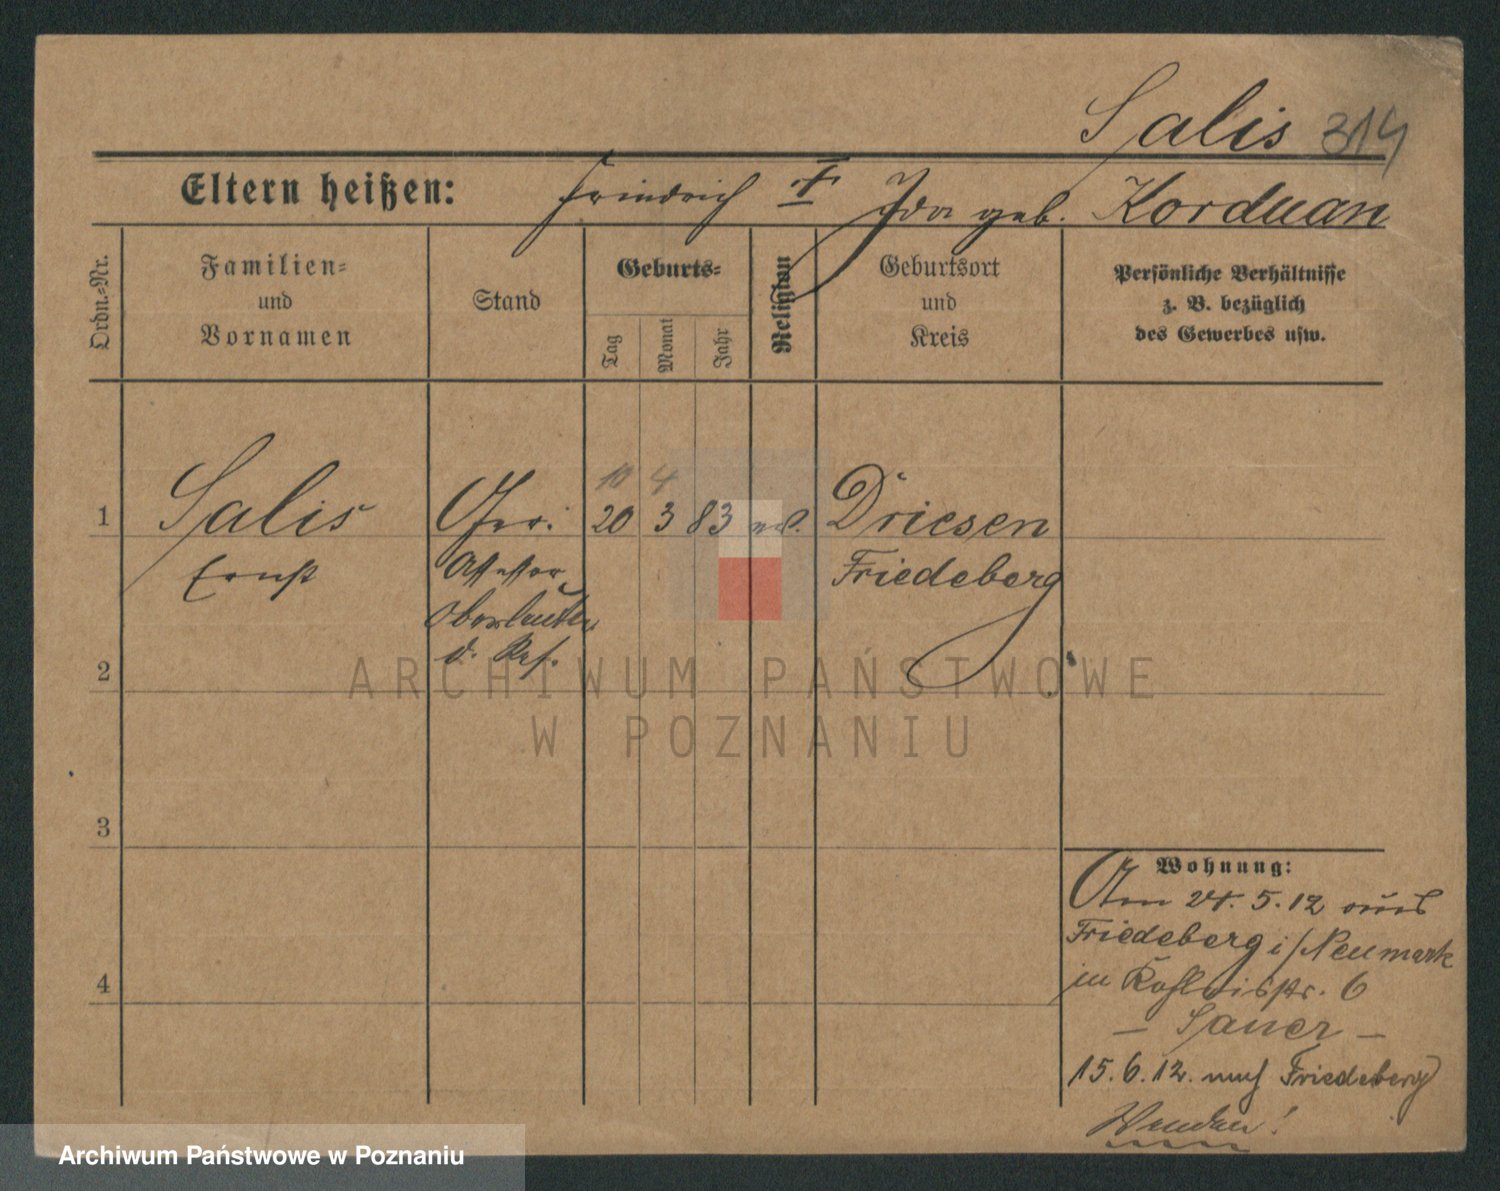 Salis 314
Eltern heißen: Friedrich † Ida geb. Korduan
Ordn.-Nr.
Familien-
und
Vornamen
Stand
Geburts-
Tag
Monat
Jahr
Religion
Geburtsort
und
Kreis
Persönliche Verhältnisse
z. B. bezüglich
des Gewerbes usw.
10 4
1 Salis 20 3 83 ev. Driesen
Ernst Assessor Friedeberg
Oberleutn.
d. Res.
2
ARCHIWUM PAŃSTWOWE
W POZNANIU
3
4
Wohnung:
Am 24. 5. 12 aus
Friedeberg i/Neumark
in 6
— Sauer —
15. 6. 12. nach Friedeberg
Wenden!
Archiwum Państwowe w Poznaniu